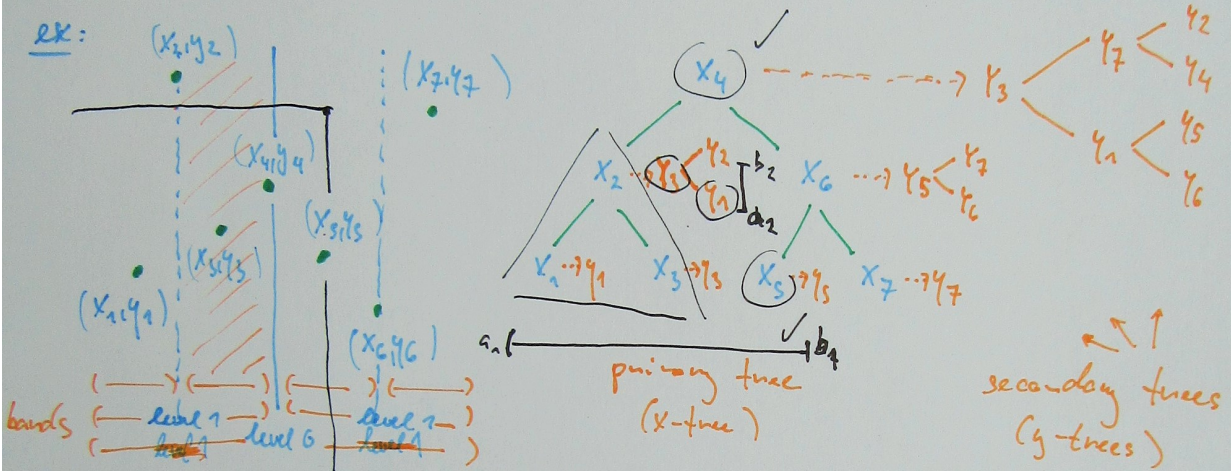 ex:
(x2,y2)
(x7,y7)
(x4,y4)
(x5,y5)
(x3,y3)
(x1,y1)
(x6,y6)
bands
level 1 level 1
level 0
x4 y3 y7 y2
y4
y1 y5
y6
x2 y3 y2
y1
b2
a2
x6 y5 y7
y6
x1 y1 x3 y3 x5 y5 x7 y7
a1 b1
primary tree
(x-tree)
secondary trees
(y-trees)